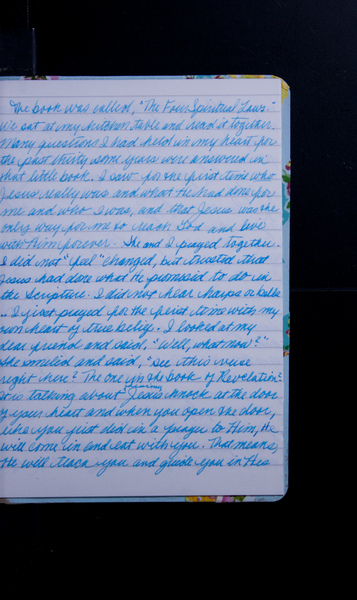 The book was called, "The Four Spiritual Laws."
We sat at my kitchen table and read it together.
Many questions I had held in my heart for
the past thirty some years were answered in
that little book. I saw for the first time who
Jesus really was and what He had done for
me and who I was, and that Jesus was the
only way for me to reach God and live
with Him forever. She and I prayed together.
I did not "feel" changed, but trusted that
Jesus had done what He promised to do in
the Scripture. I did not hear harps or bells
.. I just prayed for the first time with my
own heart of true belief. I looked at my
dear friend and said, "Well, what now?"
She smiled and said, "see this verse
right here? The one in the book of Revelation?
It is talking about Jesus knock at the door
of your heart and when you open the door,
like you just did in a prayer to Him, He
will come in and eat with you. That means,
He will teach you and guide you in His